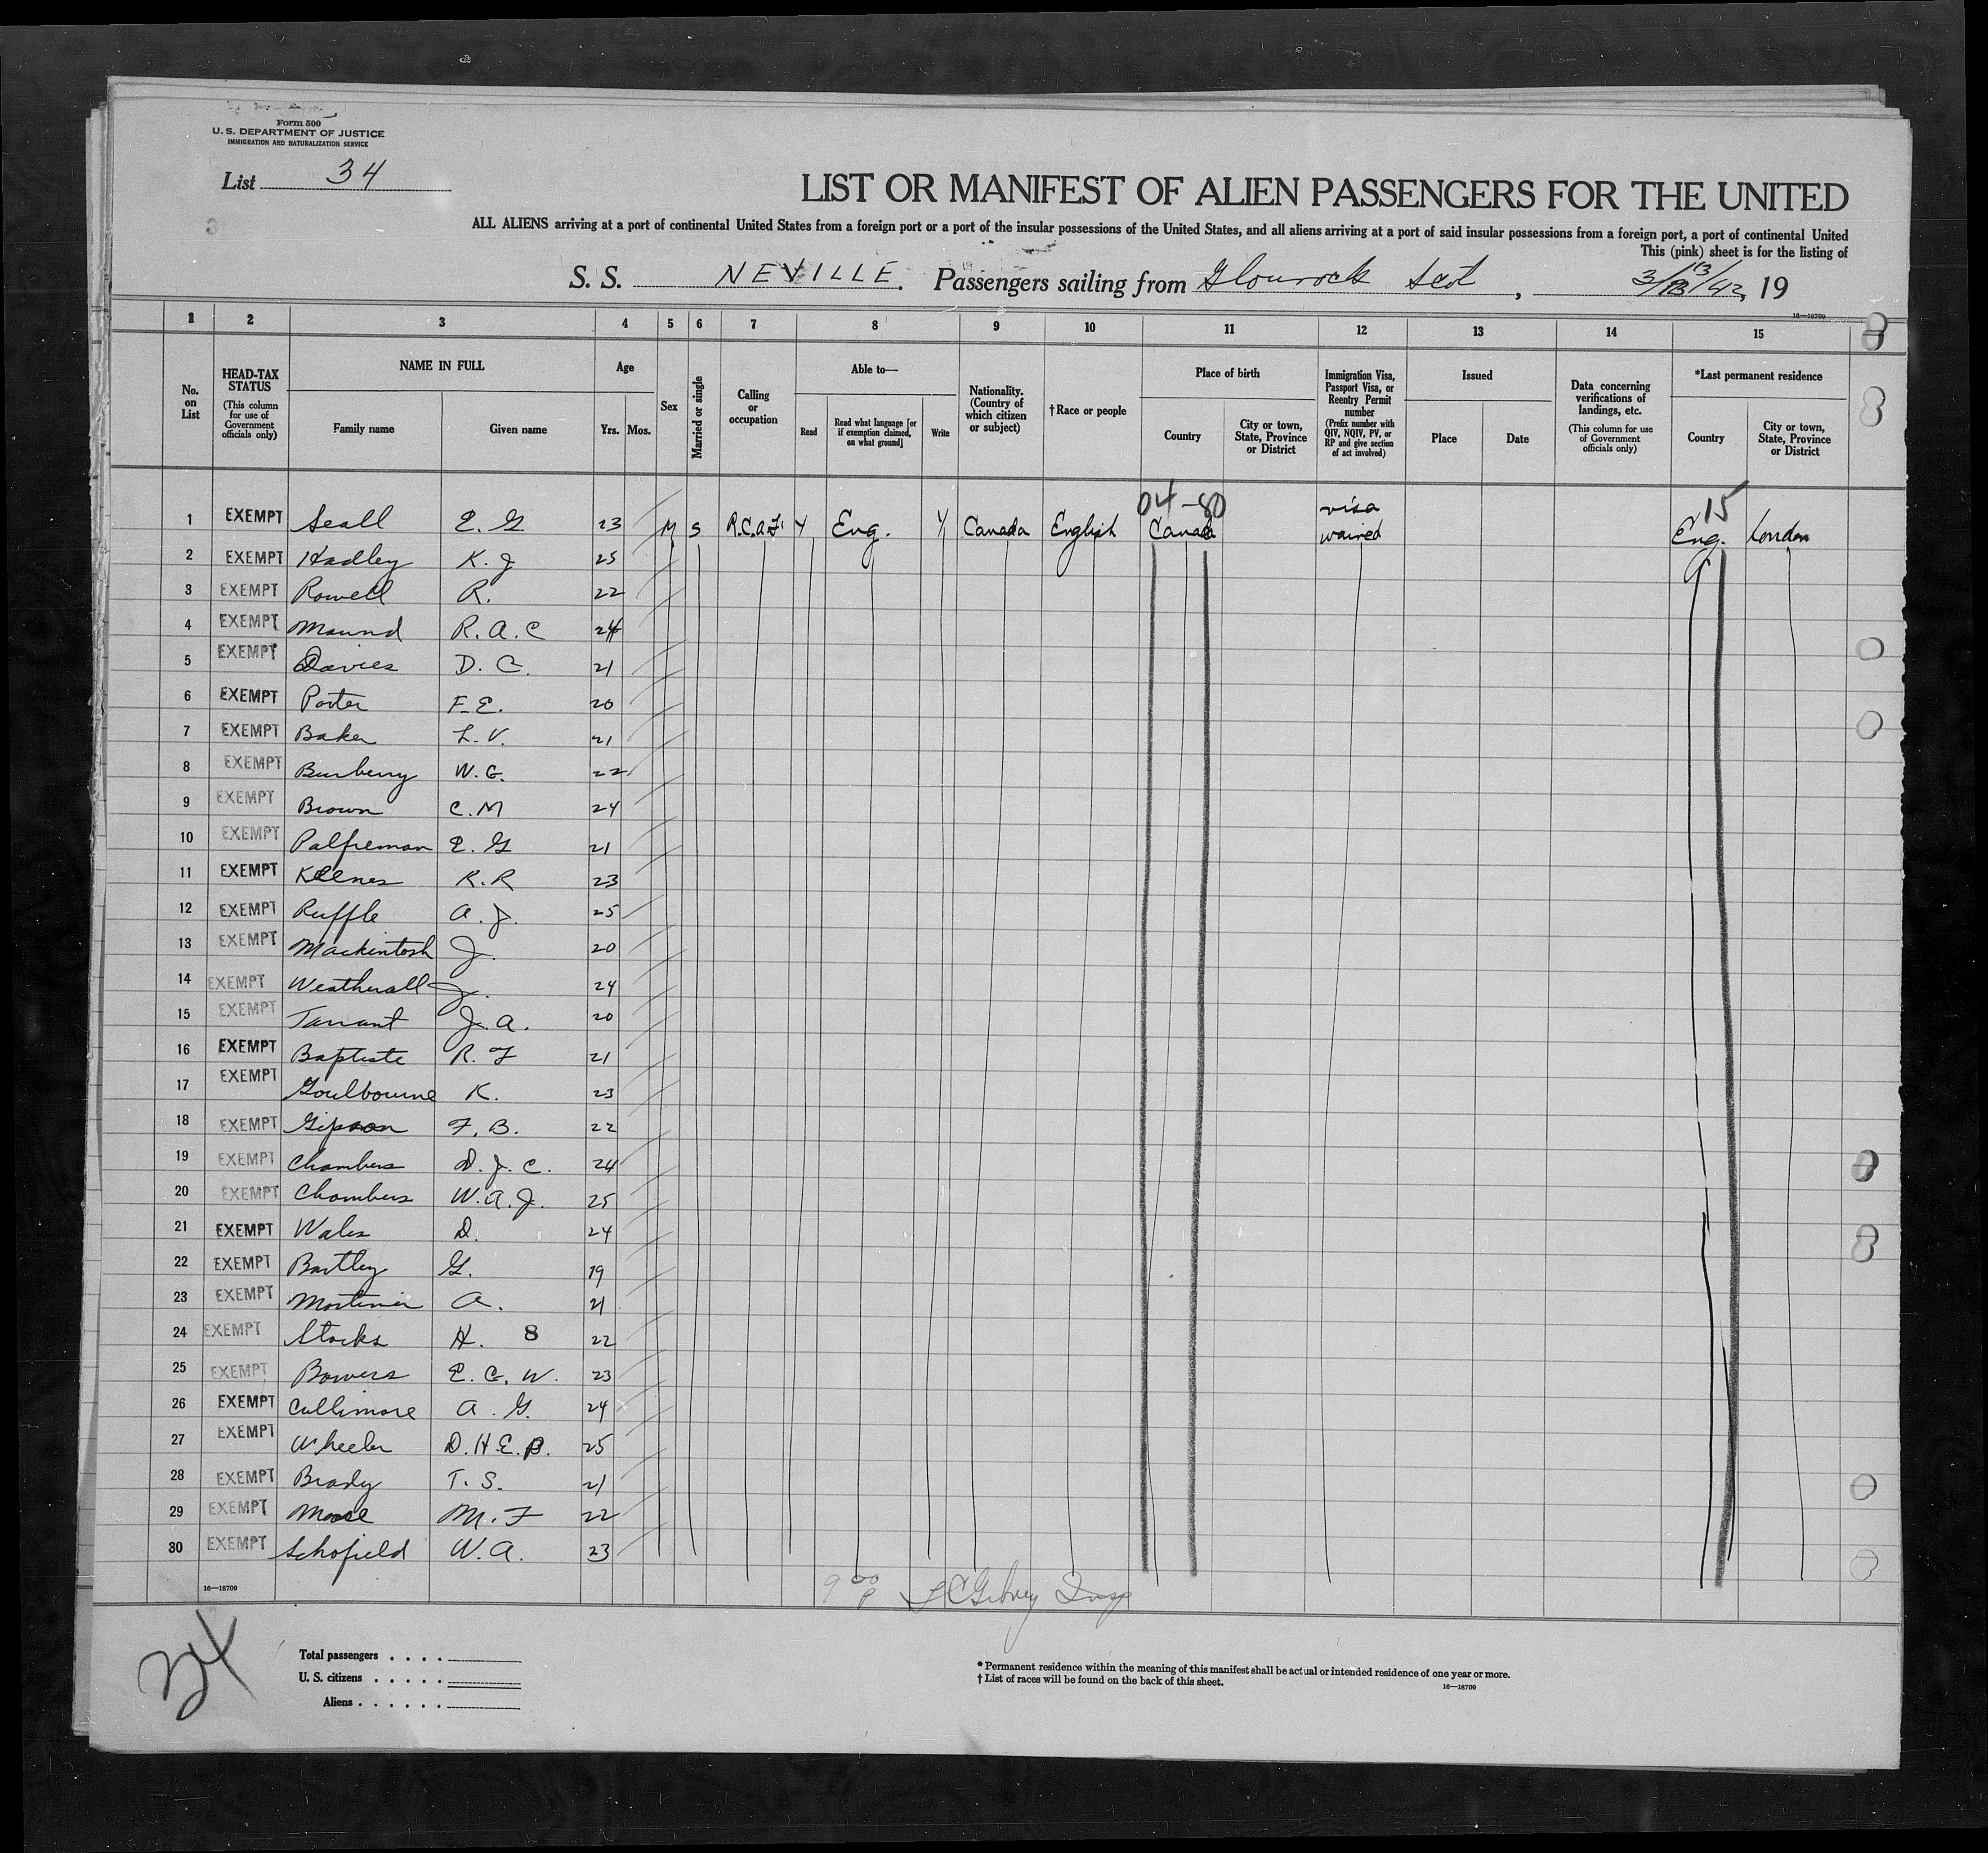 Form 500
U. S. DEPARTMENT OF JUSTICE
IMMIGRATION AND NATURALIZATION SERVICE
List 34
LIST OR MANIFEST OF ALIEN PASSENGERS FOR THE UNITED
ALL ALIENS arriving at a port of continental United States from a foreign port or a port of the insular possessions of the United States, and all aliens arriving at a port of said insular possessions from a foreign port, a port of continental United
This (pink) sheet is for the listing of
S. S. NEVILLE. Passengers sailing from Glourock Scot, 3/13/42, 19
16—18709
1 2 3 4 5 6 7 8 9 10 11 12 13 14 15
No. on List
HEAD-TAX STATUS (This column for use of Government officials only)
NAME IN FULL
Family name Given name
Age
Yrs. Mos.
Sex
Married or single
Calling or occupation
Able to—
Read
Read what language [or if exemption claimed, on what ground]
Write
Nationality. (Country of which citizen or subject)
†Race or people
Place of birth
Country
City or town, State, Province or District
Immigration Visa, Passport Visa, or Reentry Permit number (Prefix number with QIV, NQIV, PV, or RP and give section of act involved)
Issued
Place Date
Data concerning verifications of landings, etc. (This column for use of Government officials only)
*Last permanent residence
Country
City or town, State, Province or District
04-80 visa 15
1 EXEMPT Seall E. G 23 M S R.C.A.F. Y Eng. Y Canada English Canada waived Eng. London
2 EXEMPT Hadley K. J 25
3 EXEMPT Rowell R. 22
4 EXEMPT Maund R. A. C 24
5 EXEMPT Davies D. C. 21
6 EXEMPT Porter F. E. 20
7 EXEMPT Baker L. V. 21
8 EXEMPT Burberry W. G. 22
9 EXEMPT Brown C. M 24
10 EXEMPT Palfreman E. G 21
11 EXEMPT Keenes R. R 23
12 EXEMPT Ruffle A. J. 25
13 EXEMPT Mackintosh J. 20
14 EXEMPT Weatherall J. 24
15 EXEMPT Tarrant J. A. 20
16 EXEMPT Baptiste R. F 21
17 EXEMPT Goulbourne K. 23
18 EXEMPT Gipson F. B. 22
19 EXEMPT Chambers D. J. C. 24
20 EXEMPT Chambers W. A. J. 25
21 EXEMPT Wales D. 24
22 EXEMPT Bartley G. 19
23 EXEMPT Mortimer A. 21
24 EXEMPT Stocks H. 8 22
25 EXEMPT Bowers E. G. W. 23
26 EXEMPT Cullimore A. G. 24
27 EXEMPT Wheeler D. H. E. B. 25
28 EXEMPT Brady T. S. 21
29 EXEMPT Moore M. F 22
30 EXEMPT Schofield W. A. 23
16—18709
9 00 P Insp
24
Total passengers . . . .
U. S. citizens . . . . .
Aliens . . . . . .
* Permanent residence within the meaning of this manifest shall be actual or intended residence of one year or more.
† List of races will be found on the back of this sheet.
16—18709